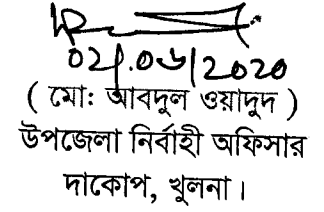 02/.06/2020
( মো: আবদুল ওয়াদুদ )
উপজেলা নির্বাহী অফিসার
দাকোপ, খুলনা।